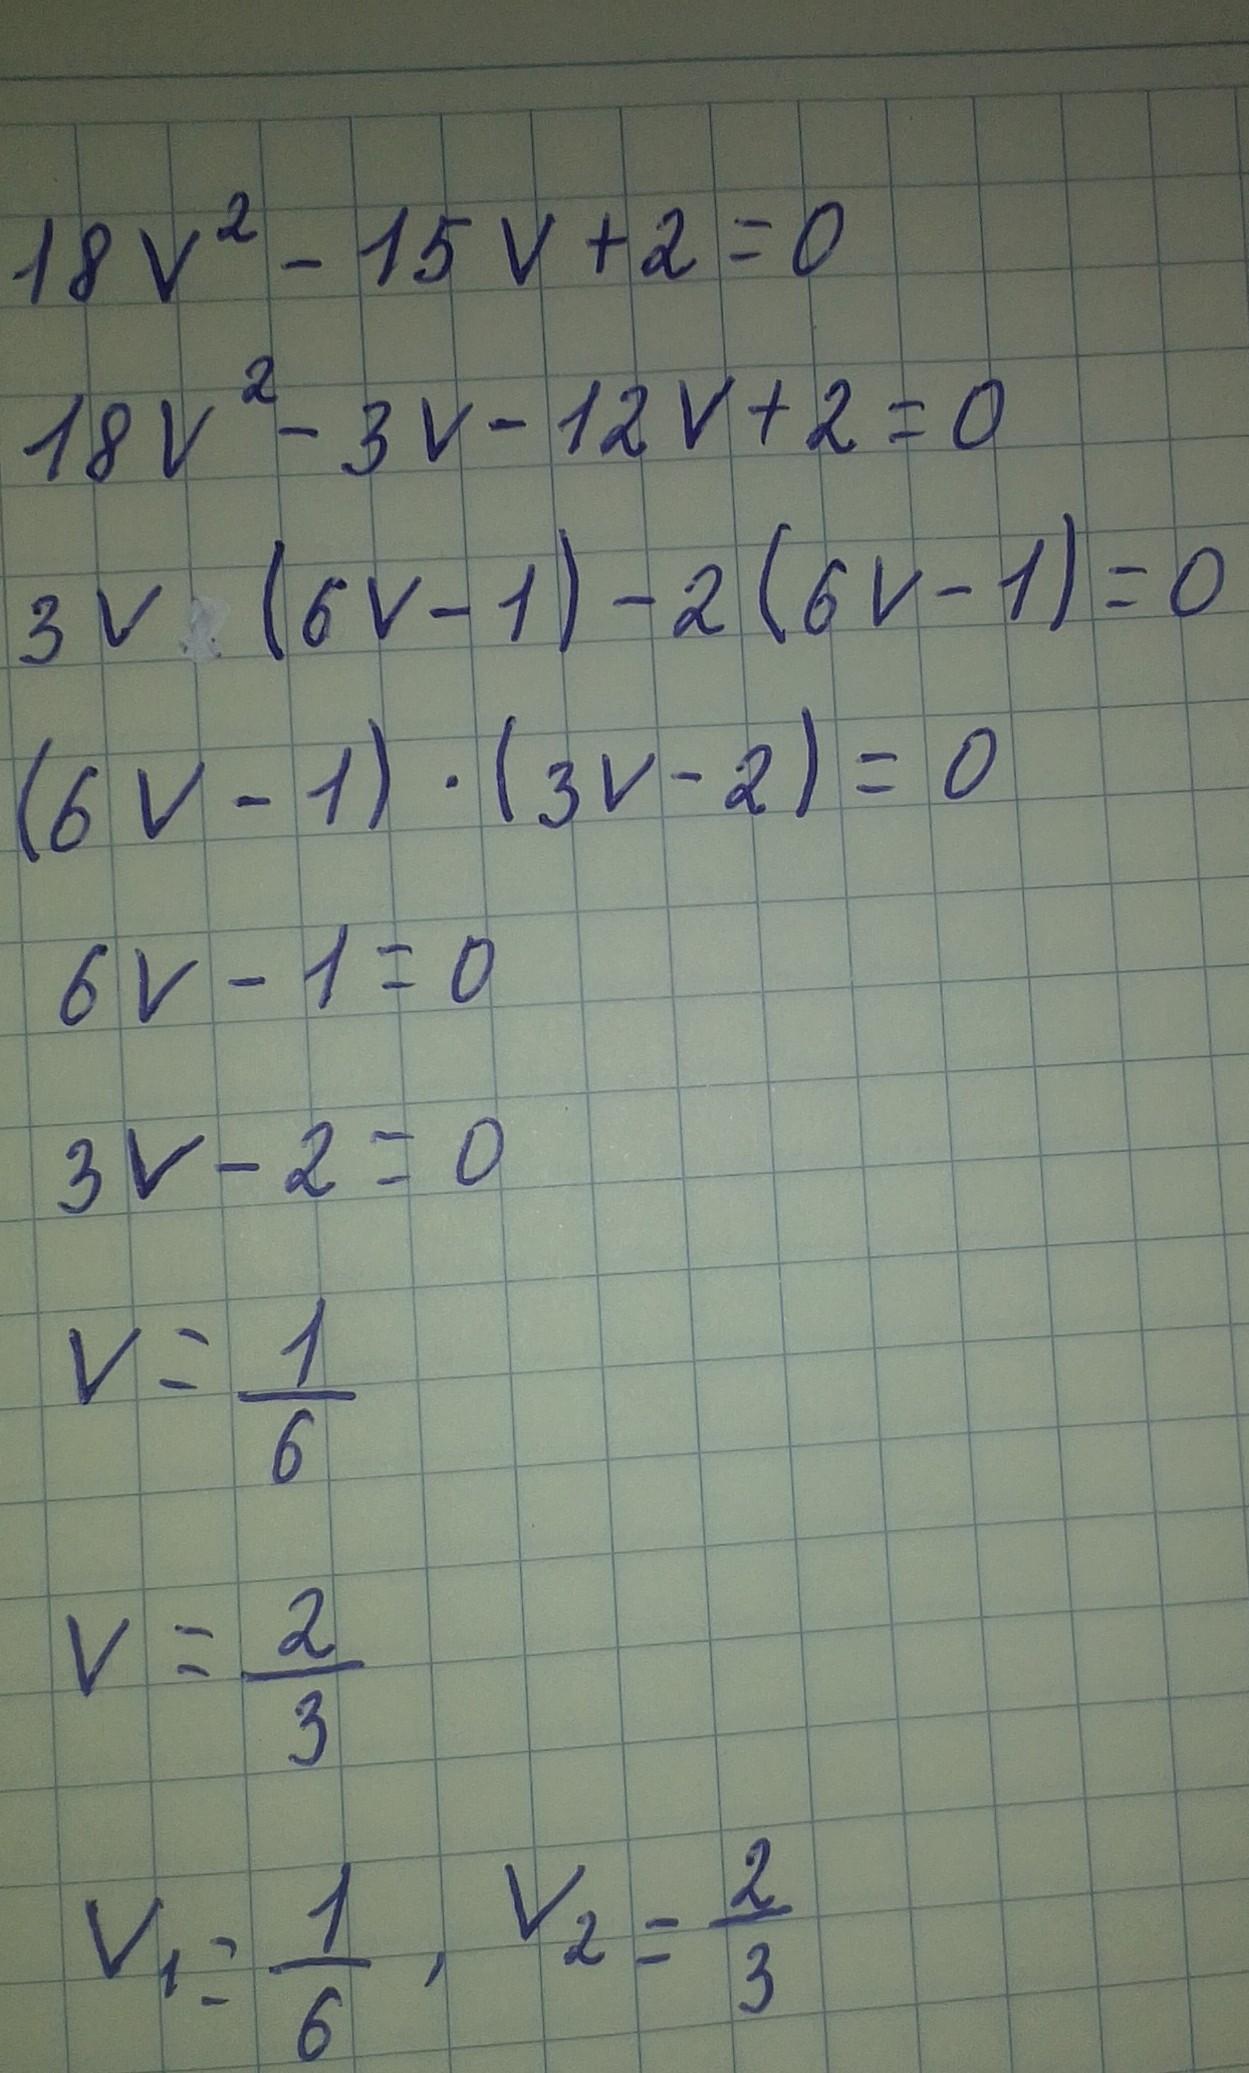 18v² - 15v + 2 = 0
18v² - 3v - 12v + 2 = 0
3v (6v - 1) - 2 (6v - 1) = 0
(6v - 1) · (3v - 2) = 0
6v - 1 = 0
3v - 2 = 0
v = 1/6
v = 2/3
v₁ = 1/6 , v₂ = 2/3